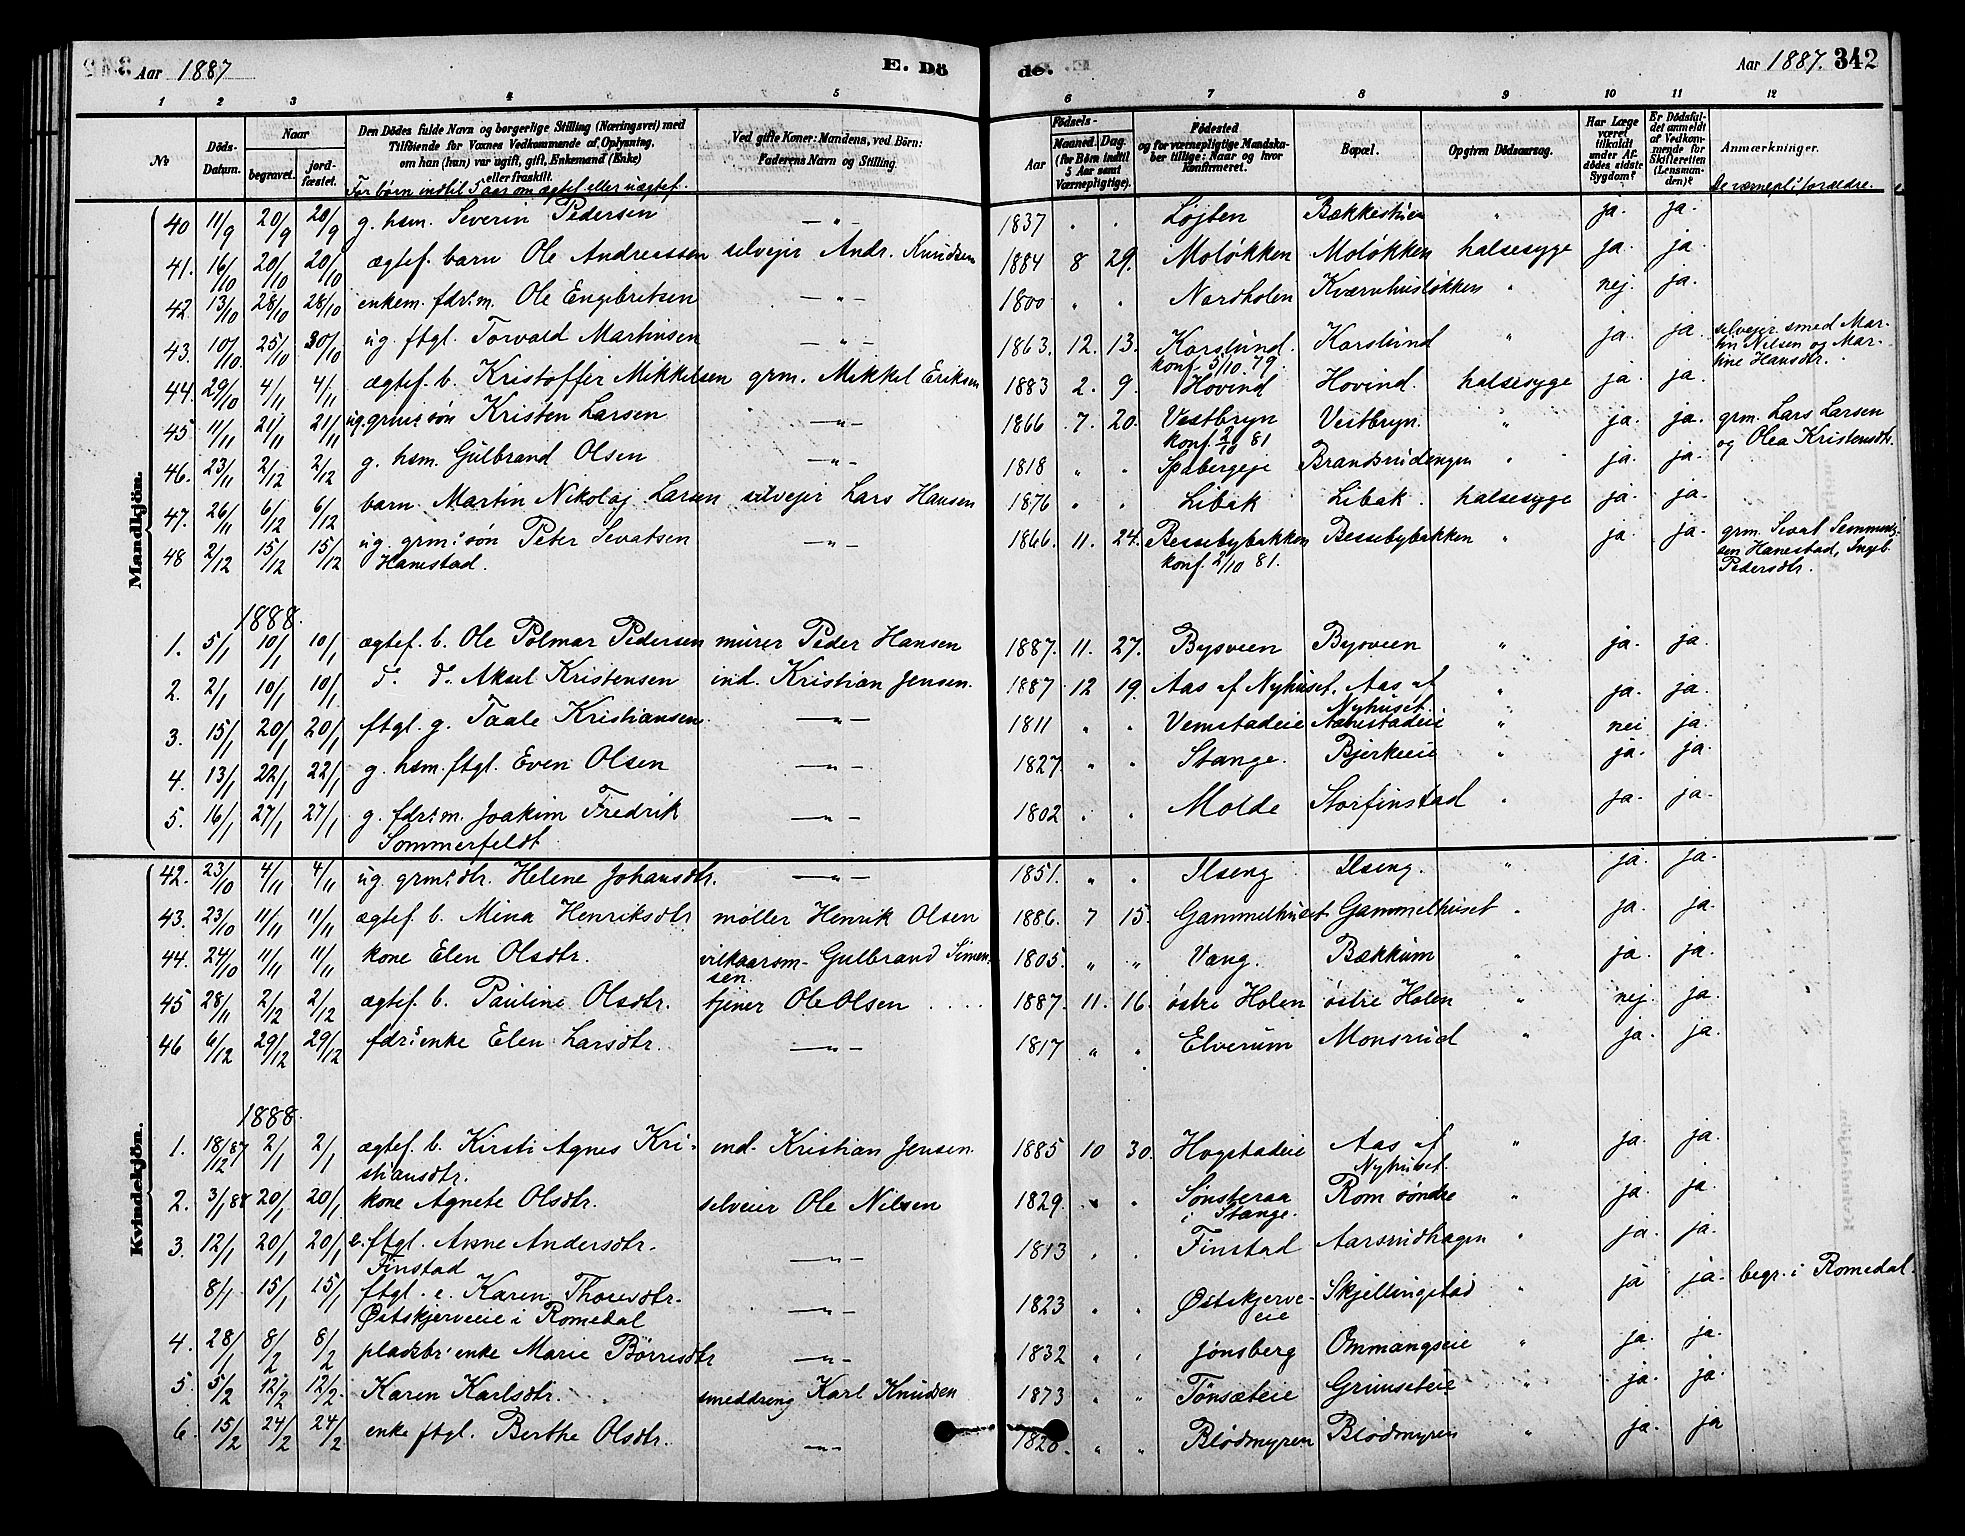 Aar 1887 E. Dö de. Aar 1887. 342
1 2 3 4 5 6 7 8 9 10 11 12
No
Döds-Datum.
Naar
begravet.
jordfæstet.
Den Dödes fulde Navn og borgerlige Stilling (Næringsvei) med
Tilföiende for Voxnes Vedkommende af Oplysning,
om han (hun) var ugift, gift, Enkemand (Enke)
eller fraskilt.
For børn indtil 5 aar om ægtef. eller uægtef.
Ved gifte Koner: Mandens, ved Börn:
Faderens Navn og Stilling.
Födsels-
Aar
Maaned. Dag.
(for Börn indtil
5 Aar samt
Værnepligtige).
Födested
og for værnepligtige Mandskaber tillige: Naar og hvor
Konfirmeret.
Bopæl.
Opgiven Dödsaarsag.
Har Læge været tilkaldt under Afdödes sidste Sygdom?
Er Dödsfaldet anmeldt af Vedkommende for Skifteretten (Lensmanden)?
Anmærkninger.
De værnepl: forældre.
Mandkjön.
40 11/9 20/9 20/9 g. hsm. Severin Pedersen — " — 1837 " " Løjten Bækkestuen " ja. ja.
41. 16/10 20/10 20/10 ægtef. barn Ole Andreassen selvejer Andr. Knudsen 1884 8 29. Moløkken Moløkken halsesyge ja. ja
42. 13/10 28/10 28/10 enkem. fdr:m. Ole Engebretsen — " — 1800 " " Nordholen Kværnhusløkken " nej. ja.
43. 10/10 25/10 30/10 ug. ftgl. Torvald Martinsen — " — 1863. 12. 13. Korslund. Korslund " ja. ja. selvejer smed Mar-
konf. 5/10 79. tin Nilsen og Mar-
tine Hansdtr.
44. 29/10 4/11 4/11 ægtef. b. Kristoffer Mikkelsen grm. Mikkel Eriksen 1883 2. 9. Hovind Hovind. halsesyge ja. ja.
45 11/11 21/11 21/11 ug. grm: søn Kristen Larsen — " — 1866 7. 20. Vestbryn Vestbryn. " ja. ja. grm. Lars Larsen
konf. 2/10 81 og Olea Kristensdtr.
46. 23/11 2/12 2/12 g. hsm. Gulbrand Olsen — " — 1818 " " Spabergeje Brandsrudengen " ja. ja.
47. 26/11 6/12 6/12 barn Martin Nikolaj Larsen selvejer Lars Hansen 1876 " " Libak Libak. halsesyge ja. ja.
48 2/12 15/12 15/12 ug. grm: søn Peter Sevatsen — " — 1866. 11. 24. Bessebybakken Bessebybakken " ja. ja.
Hanestad. konf. 2/10 81. sen Hanestad, Ingeb.
Pedersdtr.
1888.
1. 5/1 10/1 10/1 ægtef. b. Ole Polmar Pedersen murer Peder Hansen 1887. 11. 27. Bysveen Bysveen " ja. ja.
2. 2/1 10/1 10/1 d. d. Aksel Kristensen ind. Kristian Jensen. 1887 12 19. Aas af Nyhuset. Aas af " ja. ja.
Nyhuset.
3. 15/1 20/1 20/1 ftgl. g. Taale Kristiansen — " — 1811 " " Vemstadeie " nei ja.
4. 13/1 22/1 22/1 g. hsm. ftgl. Even Olsen — " — 1827 " " Stange. Bjerkeeie " ja. ja.
5. 16/1 27/1 27/1 g. fdr:m. Joakim Fredrik — " — 1802 " " Molde Storfinstad " ja. ja.
Sommerfeldt
Kvindekjön.
42. 23/10 4/11 4/11 ug. grm: dtr. Helene Johansdtr. — " — 1851. " " Ilseng Ilseng. " ja. ja.
43. 23/10 11/11 11/11 ægtef. b. Mina Henriksdtr møller Henrik Olsen 1886. 7 15. Gammelhuset Gammelhuset " ja. ja.
44. 24/10 11/11 11/11 kone Elen Olsdtr. vilkaarsm. Gulbrand Simen- 1805. " " Vang. Bækkum " ja. ja.
sen.
45 28/11 2/12 2/12 ægtef. b. Pauline Olsdtr. tjener Ole Olsen 1887. 11. 16. østre Holen østre Holen " nej. ja.
46 6/12 29/12 29/12 fdr: enke Elen Larsdtr. — " — 1817 " " Elverum Monsrud " ja. ja.
1888.
1. 18/12 87 2/1 2/1 ægtef. b. Kirsti Agnes Kri- ind. Kristian Jensen. 1885 10 30. Hogstadeie Aas af " ja. ja.
stiansdtr. Nyhuset.
2. 3/1 88 20/1 20/1 kone Agnete Olsdtr. selveier Ole Nilsen 1829. " " Sønsteraa Rom søndre " ja. ja.
i Stange.
3. 12/1 20/1 20/1 e. ftgl. Anne Andersdtr. — " — 1813 " " Finstad Aarsrudhagen " ja. ja.
Finstad
8/1 15/1 15/1 ftgl. e. Karen Thoresdtr. — " — 1823 " " Østskjerve- Skjellingstad " ja ja. begr. i Romedal.
Østskjerveeie i Romedal eie
4. 28/1 8/2 8/2 pladsbr: enke Marie Börresdtr — " — 1832 " " Jønsberg Ommangseie " ja. ja.
5. 5/2 12/2 12/2. Karen Karlsdtr. smeddreng Karl Knudsen 1873 " " Tønsæteie Grimseteie " ja. ja.
6. 15/2 24/2 24/2 enke ftgl. Berthe Olsdtr. — " — 1828. " " Blødmyren Blødmyren " ja. ja